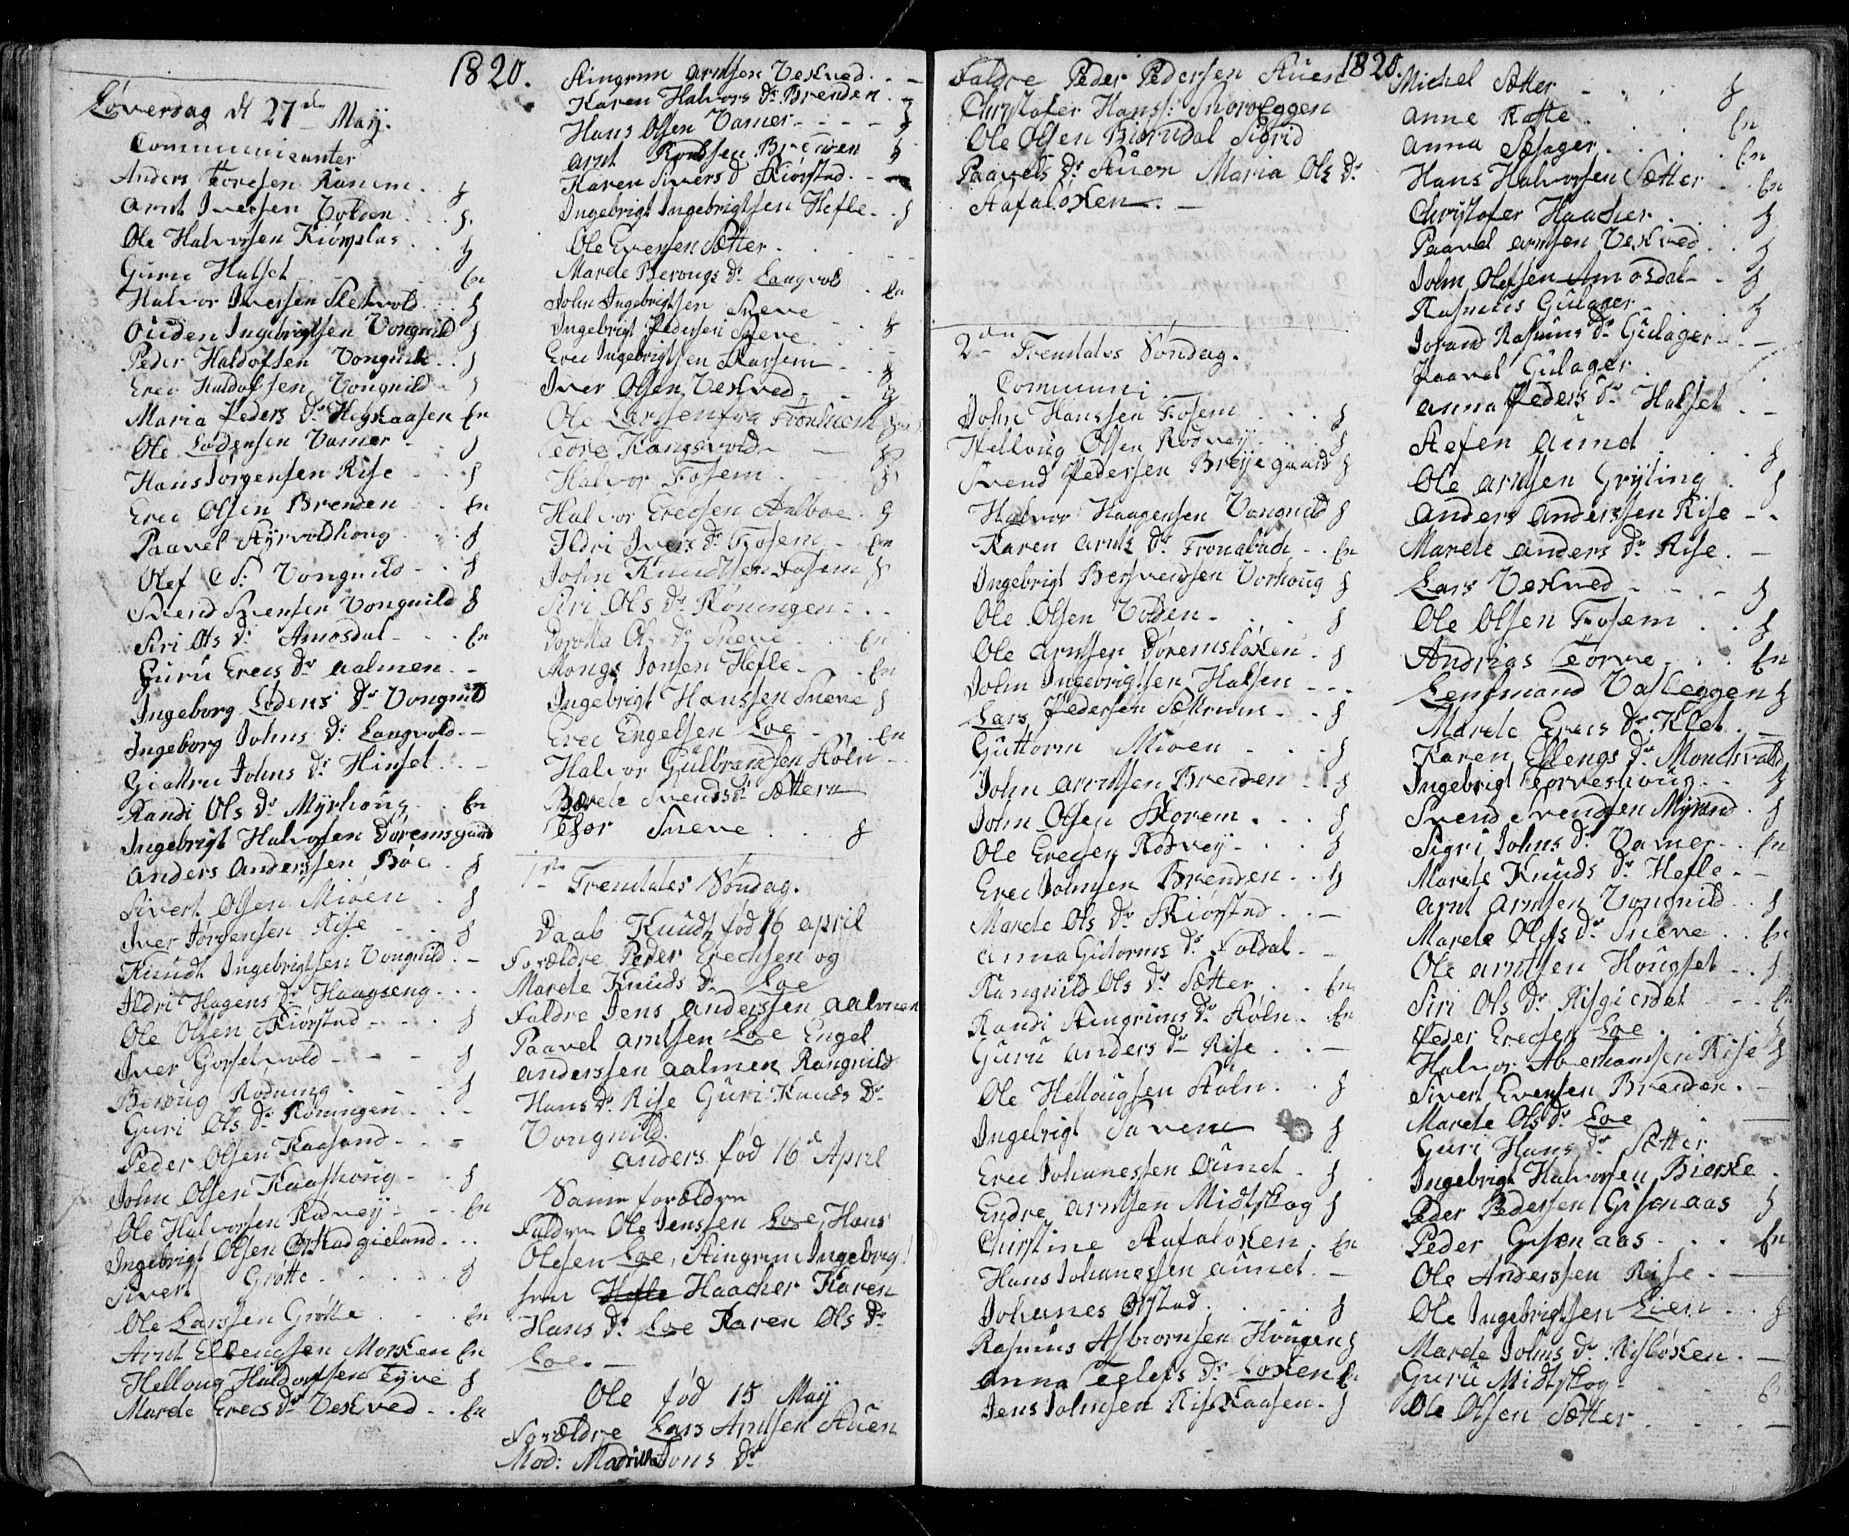 1820.
Løverdag d 27de Maÿ.
Communicanter
Anders Toresen Ranem . . 2
Arnt Iversen Volden . . . 2
Ole Halvorsen Kiørsplas . . 2
Guru Halset - - - En
Halvor Iversen Stetvold . . 2
Ouden Ingebrigtsen Vongnild 2
Peder Haldofsen Vongnild . . 2
Erec Haldofsen Vongnild - 2
Maria Peders Dr Hegskaasen En
Ole Lodensen Vamer - . 2
Hans Jørgensen Rise - - . 2
Erec Olsen Brenden . . En
Paavel Styrvoldhoug . . . 2
Olef Vongnild - . 2
Svend Svensen Vongnild 2
Siri Ols Dr Amosdal - . . En
Guru Erecs Dr Aalmen . -
Ingeborg Lodens Dr Vongnild
Ingeborg Johns Dr Langvold . -
Giøttru Johns Dr Hinset . . -
Randi Ols Dr Myrhoug . . En
Ingebrigt Halvorsen Doremsgaard
Anders Anderssen Bøe . 2
Sivert Olsen Mioen . 2
Iver Jørgensen Rise - - . 2
Knudt Ingebrigtsen Vongnild . -
Ildri Hagens Dr Haagseng . . .
Ole Olsen Skiørstad - . . . 2
Iver Gorsetvold - - - - 2
Beroug Rodning . . . . 2
Guri Ols Dr Roningen . . -
Peder Olsen Kaasand - . . =
John Olsen Kaashoug - . . 2
Ole Halvorsen Rødvej - - . En
Ingebrigt Olsen Ørstadgieland . . .
Sivert Grøtte . . . . . 2
Ole Larssen Grøtte . . . En
Arnt Ellengsen Morken En
Helloug Haldorsen Tyve 2
Marete Erecs Dr Vekved . . En
Stingrim Arntsen Vekved . . -
Karen Halvors Dr Brenden . 2
Hans Olsen Vamer - - - - 2
Arnt Brenden 2
Karen Sivers D Skiørstad . -
Ingebrigt Ingebrigtsen Hefle . . 2
Ole Evensen Sætter . . . .
Marete Berougs Dr Langvold . En
John Ingebrigtsen Sneve
Ingebrigt Pedersen Sneve . . . 2
Erec Ingebrigtsen Skarsem . . 2
Iver Olsen Vekved - - . 2
Ole Larssen fra Trondhiem
Tore Kangsvold - 2
Halvor Fosem . . . 2
Halvor Erecsen Aalboe . 2
Ildri Ivers Dr Fosem . En
John Knudtsen Fosem 2
Siri Ols Dr Roningen - . .
Dorotea Ols Dr Sneve . . En
Mongs Jonsen Hefle . . En
Ingebrigt Hanssen Sneve 2
Erec Engelsen Loe - . . En
Halvor Gulbrandsen Støln - .
Marete Svends Dr Sættern
Thor Sneve . . . 2
1ste Trendates Søndag.
Daab Knudt fød 16 april
Forældre Peder Erecksen og
Marete Knuds Dr Loe
Faldre Jens Anderssen Aalmen
Paavel Arntsen Loe Engel
Anderssen Aalmen Rangnild
Hans Dr Rise Guri Knuds Dr
Vongnild.
Anders fød 16de April
Samme forældre
Faldre Ole Jenssen Loe, Hans
Olesen Loe, Stingrim Ingebrig¦
sen Hefle Haacher Karen
Hans Dr Loe Karen Ols Dr
Loe. -
Ole fød 15 Maÿ
Forældre Lars Arntsen Stuen
Mod: Jons Dr
Faldre Peder Pedersen Stuen
Christofer Hans: Snoroeggen
Ole Olsen Biørndal Sigrid
Paavels Dr Stuen Maria Ols Dr
Stafaløken. -
2den Trendates Søndag.
Communi:
John Hanssen Fosem . . . 2
Helloug Olsen Rødvej . . . 2
Svend Pedersen Breijegaard 2
Halvor Haagensen Vongnild 2
Karen Arnts Dr Tronabach . . En
Ingebrigt Bersvendsen Vorhoug 2
Ole Olsen Volden . . . . 2
Ole Arntsen Doremsløken . 2
John Ingebrigtsen Halsen - - -
Lars Pedersen Sætrum - . 2
Guttorm Mioen - . . . 2
John Arntsen Brenden . . 2
John Olsen Skorem . . . 2
Ole Erecsen Rødvej . . . 2
Erec Johnsen Brenden . . 2
Marete Ols Dr Skiørstad . . -
Anna Gutorms Dr Foldal . -
Rangnild Ols Dr Sætter . . En
Randi Stingrims Dr Støln . En
Guru Anders Dr Rise . . -
Ole Hellougsen Støln . . 2
Ingebrigt Savem 2
Erec Johanessen Aunet . 2
Endre Arntsen Midtskog 2
Christine Stafaløken . En
Hans Johanessen Aunet . -
Johanes Ørstad . . . . . 2
Rasmus Asbiørnsen Hougen 2
Anna Dr Løken En
Jens Johnsen Riskaasen . 2
1820.
Michel Sætter - . . . 2
Anne Kaste . . . . En
Anna Sæsager . . . . En
Hans Halvorsen Sætter . En
Christofer Haacher . . . 2
Paavel Arntsen Vekved . . 2
John Olefsen Amosdal - . 2
Rasmus Gulager - . . . 2
Jorand Rasmus Dr Gulager . . -
Paavel Gulager . . . .
Anna Peders Dr Halset . . -
Stefen Aund . . . . 2
Ole Arntsen Gryting . . 2
Anders Anderssen Rise - -
Marete Anders Dr Rise . . -
Lars Vekved - . - - 2
Ole Olsen Fosem . . 2
Andrias Torve . . . En
Lensmand Vasleggen 2
Marete Erecs Dr Klet . . -
Karen Ellengs Dr Monchsvald
Ingebrigt Torveshoug . . 2
Svend Svendsen Myrand . 2
Sigri Johns Dr Vamer . . En
Marete Knuds Dr Hefle . . -
Arnt Arntsen Vongnild . . 2
Marete Olefs Dr Sneve . . En
Ole Arntsen Hougset . . 2
Siri Ols Dr Risgierdet - - - En
Peder Erecsen Loe . . . 2
Halvor Aberhamsen Rise 2
Sivert Evensen Brenden . -
Marete Ols Dr Loe
Guri Hans Dr Sætter
Ingebrigt Halvorsen Bierke .
Peder Pedersen Gisenaas 2
Peder Gisenaas . . . En
Ole Anderssen Rise . -
Ole Ingebrigtsen Lien . . 2
Marete Johns Dr Risløken . -
Guru Midtskog - - - - 6
Ole Olsen Sætter . . . -